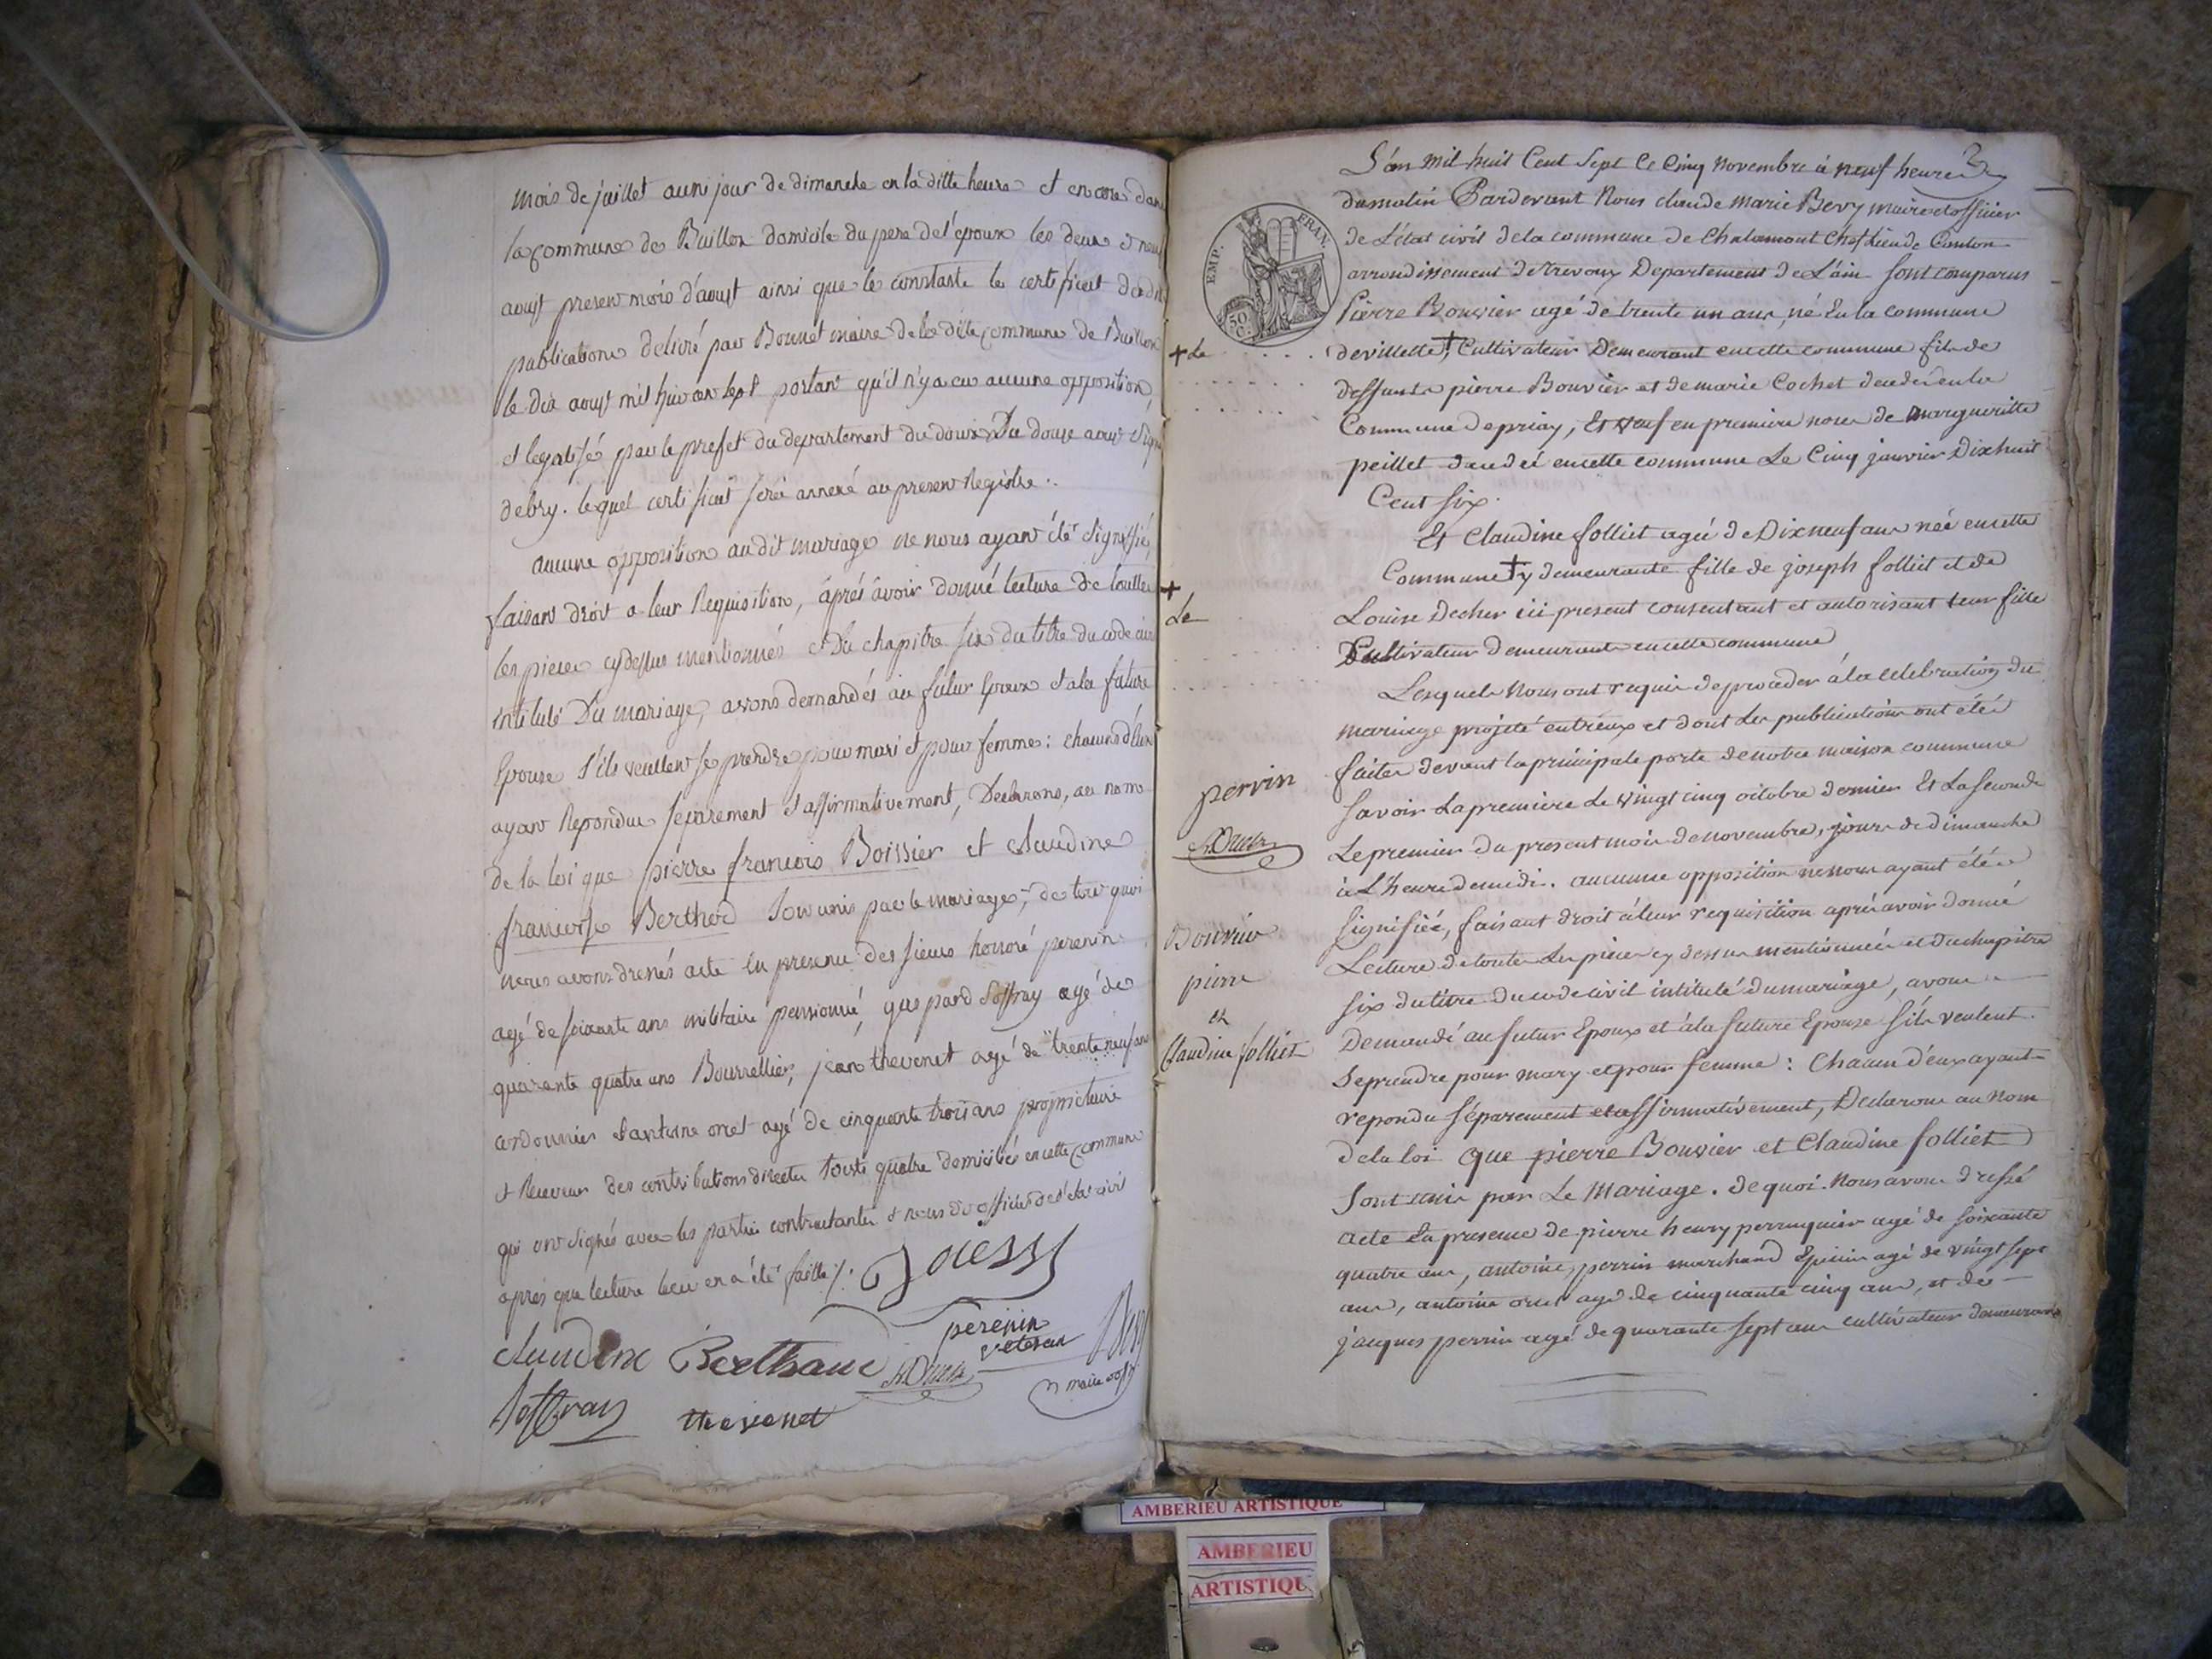 mois de juillet aussi jour de dimanche en la ditte heure et encore dans
la commune de Buillon domicile du pere de l'époux les deux et neuf
aoust present mois d'aoust ainsi que le constate le certificat de
publications delivré par Bonnet maire de la dite commune de Buillon
le dix aoust mil huit cent sept portant qu'il n'y a eu aucune opposition,
et legalisé par le prefet du departement du doux Du douze aoust signé
debry. lequel certificat sera annexé au present Registre.
aucune opposition au dit mariage ne nous ayant été signifié,
faisant droit a leur Requisition, aprés avoir donné lecture de toutes
les pieces cy dessus mentionnés et Du chapitre six du titre du code civil
intitulé Du mariage, avons demandés au futur Epoux et a la future
Epouse s'ils veullent se prendre pour mari et pour femme: chacun d'eux
ayant Repondu separement et affirmativement, Declarons, au nom
de la loi que pierre francois Boissier et claudine
francoise Berthod sont unis par le mariage; de tout quoi
nous avons dressés acte en presence des sieurs honoré perenin
agé de soixante ans militaire pensionné, gaspard Soffray agé de
quarante quatre ans Bourrellier, jean thevenet agé de trente neuf ans
cordonnier et antoine oret agé de cinquante trois ans propriétaire
et Receveur des contributions directes tous quatre domiciliés en cette commune
qui ont signés avec les parties contractantes et nous dit officier de l'etat civil
aprés que lecture leur en a été faitte /.
claudine Berthaud
perenin
veteran
thevenet
L'an mil huit Cent Sept Le Cinq novembre à neuf heures
du matin Pardevant Nous claude Marie Bevy maire et officier
de L'état civil de la commune de Chalamont Chef Lieu de Canton
arrondissement de trevoux Departement de L'ain sont comparus
EMP. FRAN.
50 C.
Pierre Bouvier agé de trente un ans, né En la commune
+ Le
de villette + Cultivateur Demeurant en cette commune fils de
deffunts pierre Bouvier et de marie Cochet décédés en la
Commune de priay, Et veuf en premiere noces de margueritte
peillet décédée en cette commune Le Cinq janvier Dix huit
Cent Six.
Et Claudine folliet agée de Dix neuf ans née en cette
+
Commune + y demeurante fille de joseph folliet et de
Le
Louise Decher ici present consentant et autorisant leur fille
Cultivateur demeurants en cette commune
Lesquels Nous ont requis de proceder à la celebration du
mariage projeté entr'eux et dont les publications ont étés
faites devant la principale porte de notre maison commune
perrin
savoir La premiere Le vingt cinq octobre dernier Et La seconde
Le premier du present mois de novembre, jours de dimanche
à L'heure de midi. aucune opposition ne nous ayant été
signifiée, faisant droit à leur requisition aprés avoir donné
Bouvier
pierre
et
Claudine folliet
Lecture de toutes Les pieces cy dessus mentionnées et du chapitre
six du titre du code civil intitulé du mariage, avons
Demandé au futur Epoux et à la future Epouse s'ils veulent
se prendre pour mary et pour femme: Chacun d'eux ayant
repondu séparement et affirmativement, Declarons au nom
de la loi que pierre Bouvier et Claudine folliet
sont unis par Le Mariage. de quoi Nous avons dressé
acte En presence de pierre henry perruquier agé de soixante
quatre ans, antoine perrin marchand Epicier agé de vingt sept
ans, antoine oret agé de cinquante cinq ans, et de
jacques perrin agé de quarante sept ans cultivateur demeurans
AMBERIEU ARTISTIQUE
AMBERIEU
ARTISTIQU